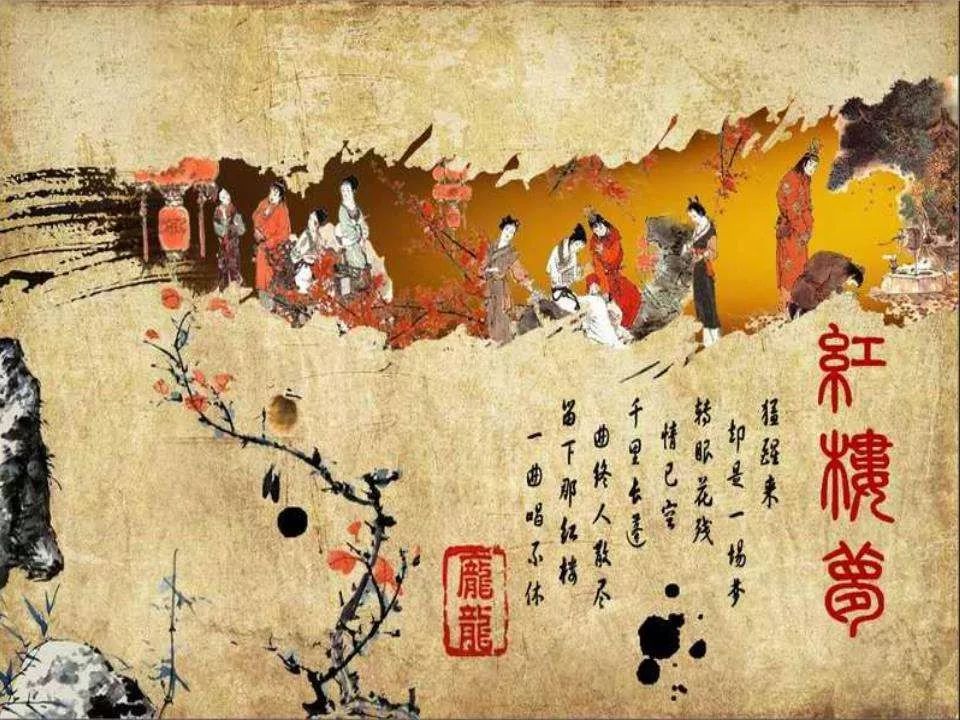 紅樓夢
猛醒来
却是一场梦
转眼花残
情已空
千里长蓬
曲终人散尽
留下那红楼
一曲唱不休
龐龍